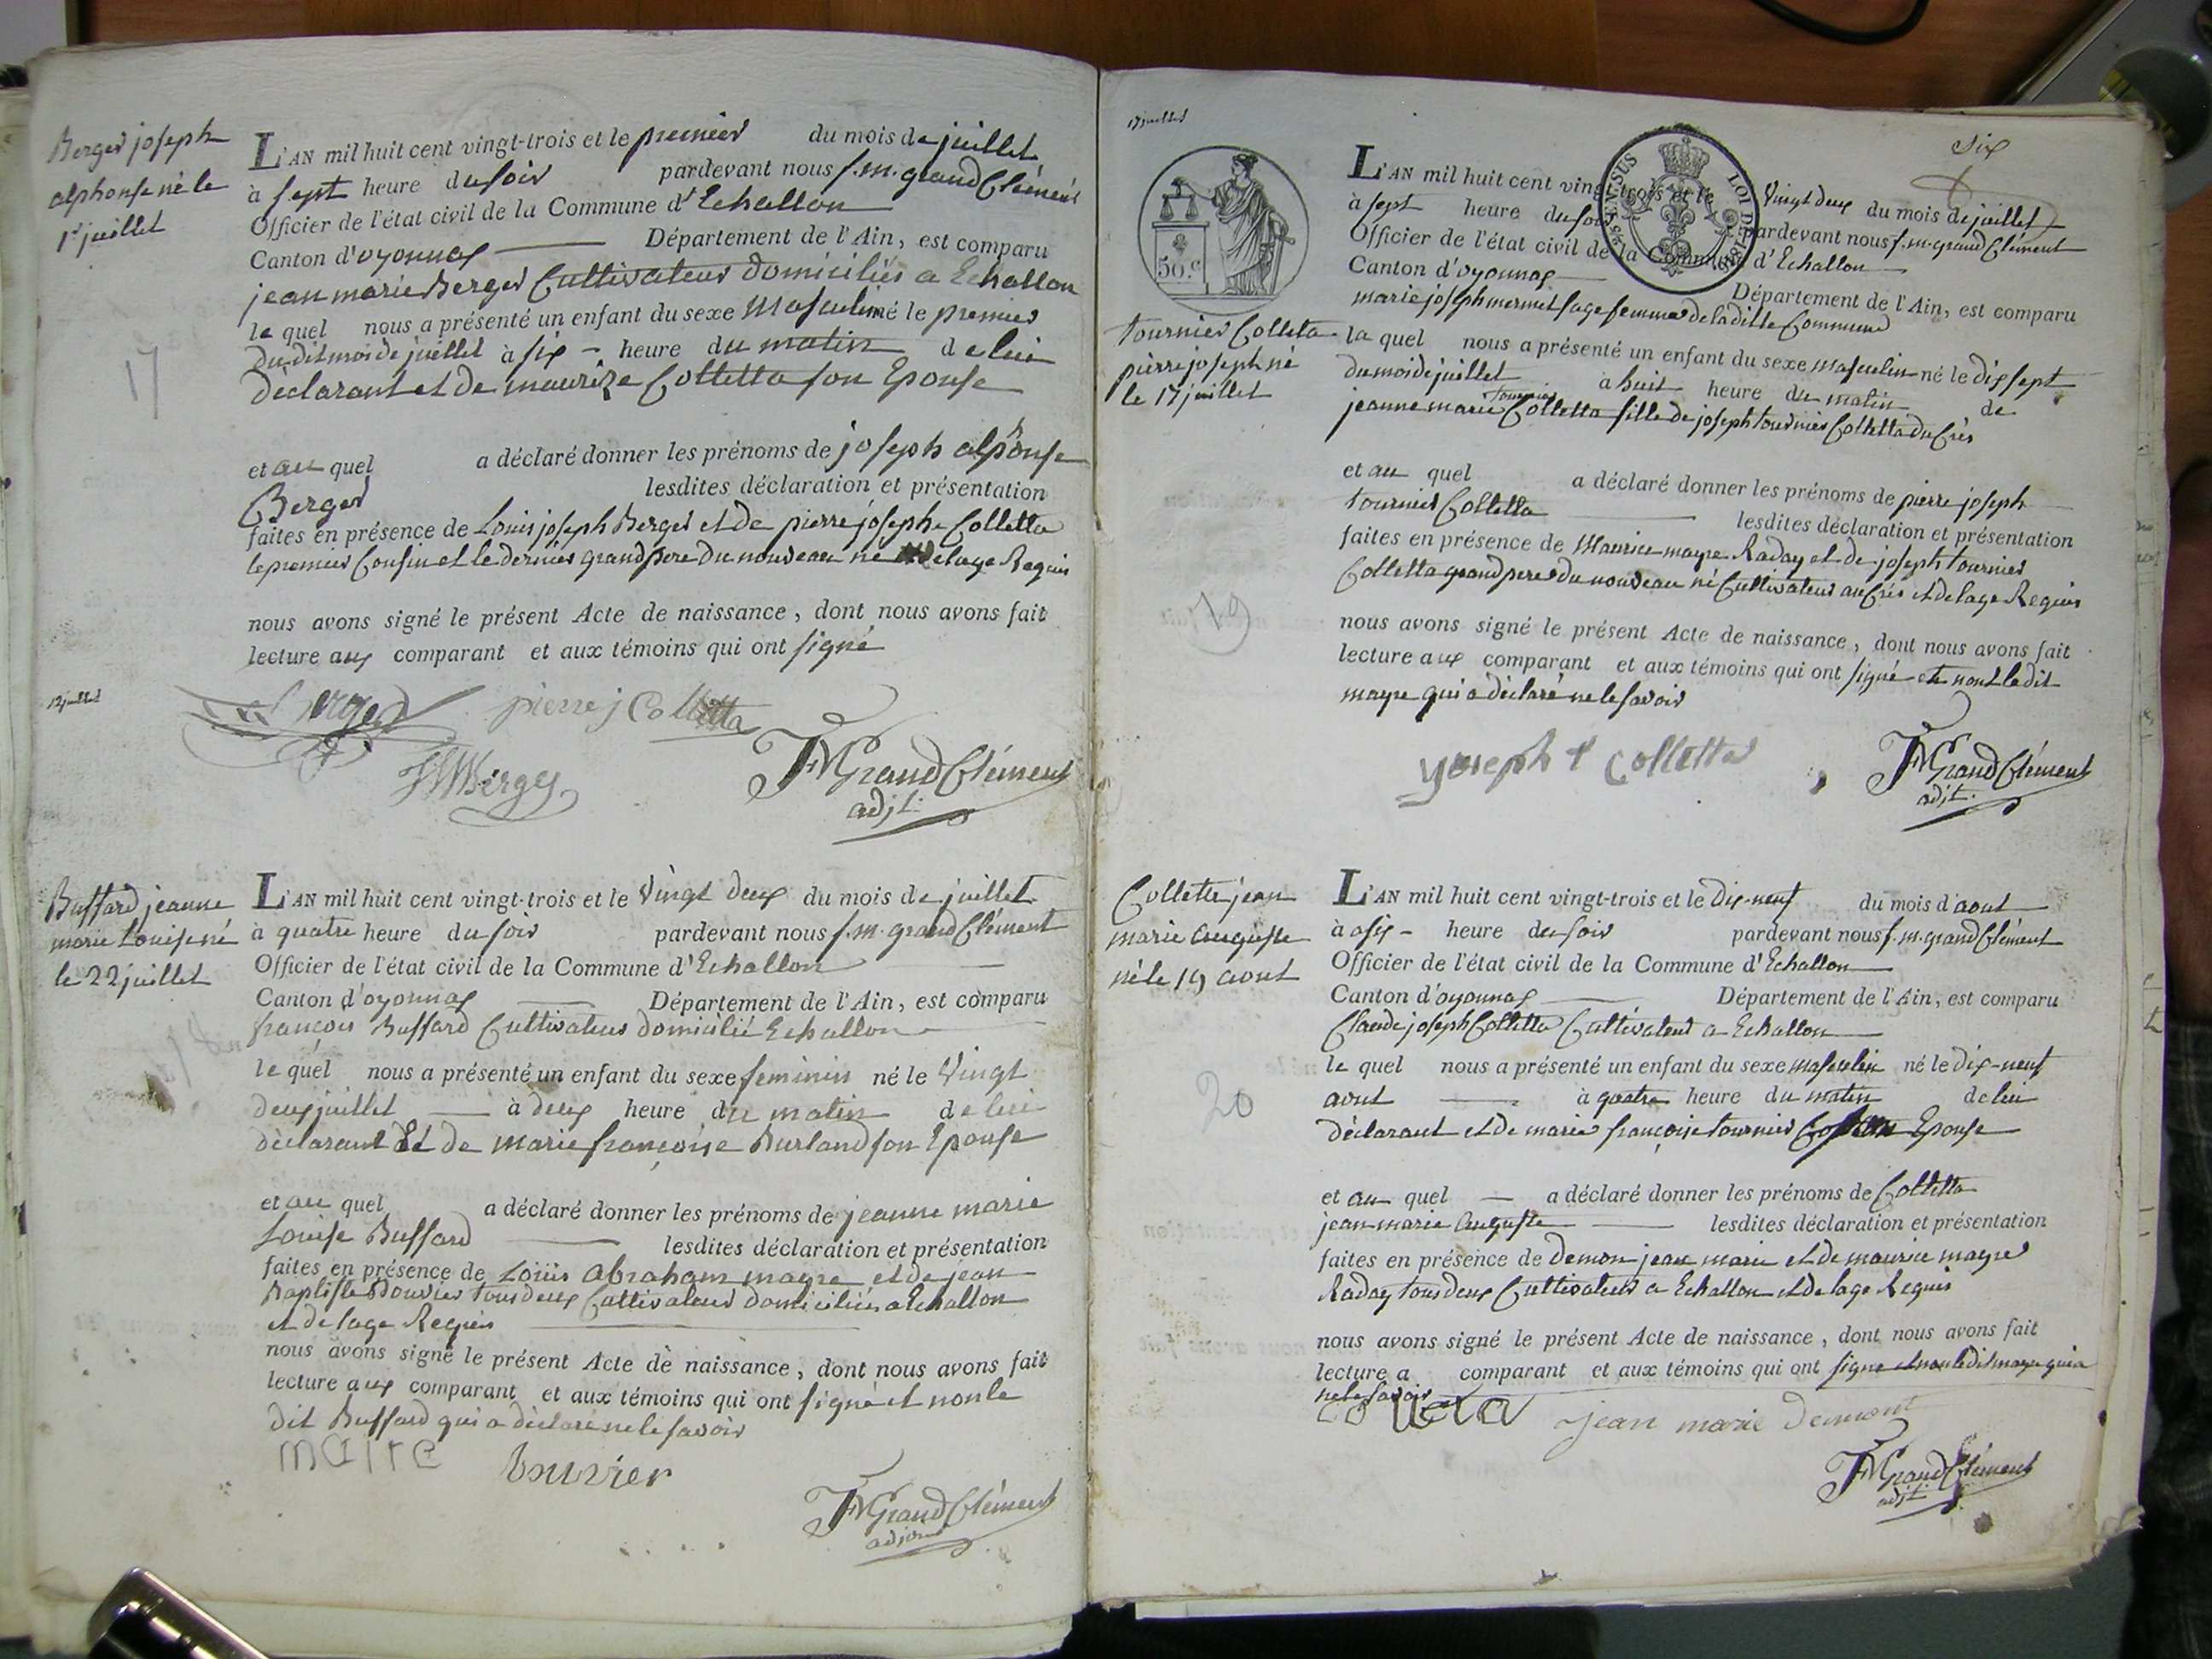 Berger joseph
alphonse né le
1er juillet
L'AN mil huit cent vingt-trois et le premier du mois de juillet
à sept heure du soir pardevant nous f. m. grand Clément
Officier de l'état civil de la Commune d'Echallon
Canton d'oyonnax Département de l'Ain, est comparu
jean marie Berger Cultivateur domiciliés a Echallon
le quel nous a présenté un enfant du sexe Masculin né le premier
du dit mois de juillet à six heure du matin de lui
déclarant et de maurize Colletta son Epouse
17
et au quel a déclaré donner les prénoms de joseph alphonse
Berger lesdites déclaration et présentation
faites en présence de Louis joseph Berger et de pierre joseph Colletta
le premier Cousin et le dernier grand pere du nouveau né de lage Requis
nous avons signé le présent Acte de naissance, dont nous avons fait
lecture aux comparant et aux témoins qui ont signé
12 juillet
Berger pierre j Colletta
Berger
FMGrandClément
adjt.
Buffard jeanne
marie Louise né
le 22 juillet
L'AN mil huit cent vingt-trois et le Vingt deux du mois de juillet
à quatre heure du soir pardevant nous f. m. grand Clément
Officier de l'état civil de la Commune d'Echallon
Canton d'oyonnax Département de l'Ain, est comparu
françois Buffard Cultivateur domicilié Echallon
le quel nous a présenté un enfant du sexe feminin né le Vingt
deux juillet à deux heure du matin de lui
déclarant Et de marie françoise Burland son Epouse
et au quel a déclaré donner les prénoms de jeanne marie
Louise Buffard lesdites déclaration et présentation
faites en présence de Loüis abraham mayre et de jean
Baptiste Bouvier tous deux Cultivateur domiciliés a Echallon
et de lage Requis
nous avons signé le présent Acte de naissance, dont nous avons fait
lecture aux comparant et aux témoins qui ont signé et non le
dit Buffard qui a déclaré ne le savoir
maire bouvier
FMGrandClément
adjoint
17 juillet
six
50.c
LOI DE 1816
Tournier Colleta
pierre joseph né
le 17 juillet
L'AN mil huit cent vingt-trois et le Vingt deux du mois de juillet
à sept heure du soir pardevant nous f. m. grand Clément
Officier de l'état civil de la Commune d'Echallon
Canton d'oyonnax Département de l'Ain, est comparu
marie joseph mermet sage femme de la ditte Commune
la quel nous a présenté un enfant du sexe masculin né le dix sept
du mois de juillet à huit heure du matin de
jeanne marie Tournier Colletta fille de joseph tournier Colletta du Crès
et au quel a déclaré donner les prénoms de pierre joseph
tournier Colletta lesdites déclaration et présentation
faites en présence de Maurice mayre Raday et de joseph tournier
Colletta grand pere du nouveau né Cultivateur au Crès et de lage Requis
19
nous avons signé le présent Acte de naissance, dont nous avons fait
lecture aux comparant et aux témoins qui ont signé et non le dit
mayre qui a déclaré ne le savoir
yoseph t Colletta
FMGrandClément
adjt.
Collette jean
marie auguste
né le 19 aout
L'AN mil huit cent vingt-trois et le dix-neuf du mois d'aout
à six heure du soir pardevant nous f. m. grand Clément
Officier de l'état civil de la Commune d'Echallon
Canton d'oyonnax Département de l'Ain, est comparu
Claude joseph Colletta Cultivateur a Echallon
le quel nous a présenté un enfant du sexe masculin né le dix-neuf
aout à quatre heure du matin de lui
déclarant et de marie françoise tournier Epouse
20
et au quel a déclaré donner les prénoms de Colletta
jean marie auguste lesdites déclaration et présentation
faites en présence de demon jean marie et de maurice mayre
Raday tous deux Cultivateur a Echallon et de lage Requis
nous avons signé le présent Acte de naissance, dont nous avons fait
lecture a comparant et aux témoins qui ont signe et non le dit mayre qui a
ne le savoir
colleta jean marie demont
FMGrandClément
adjt.